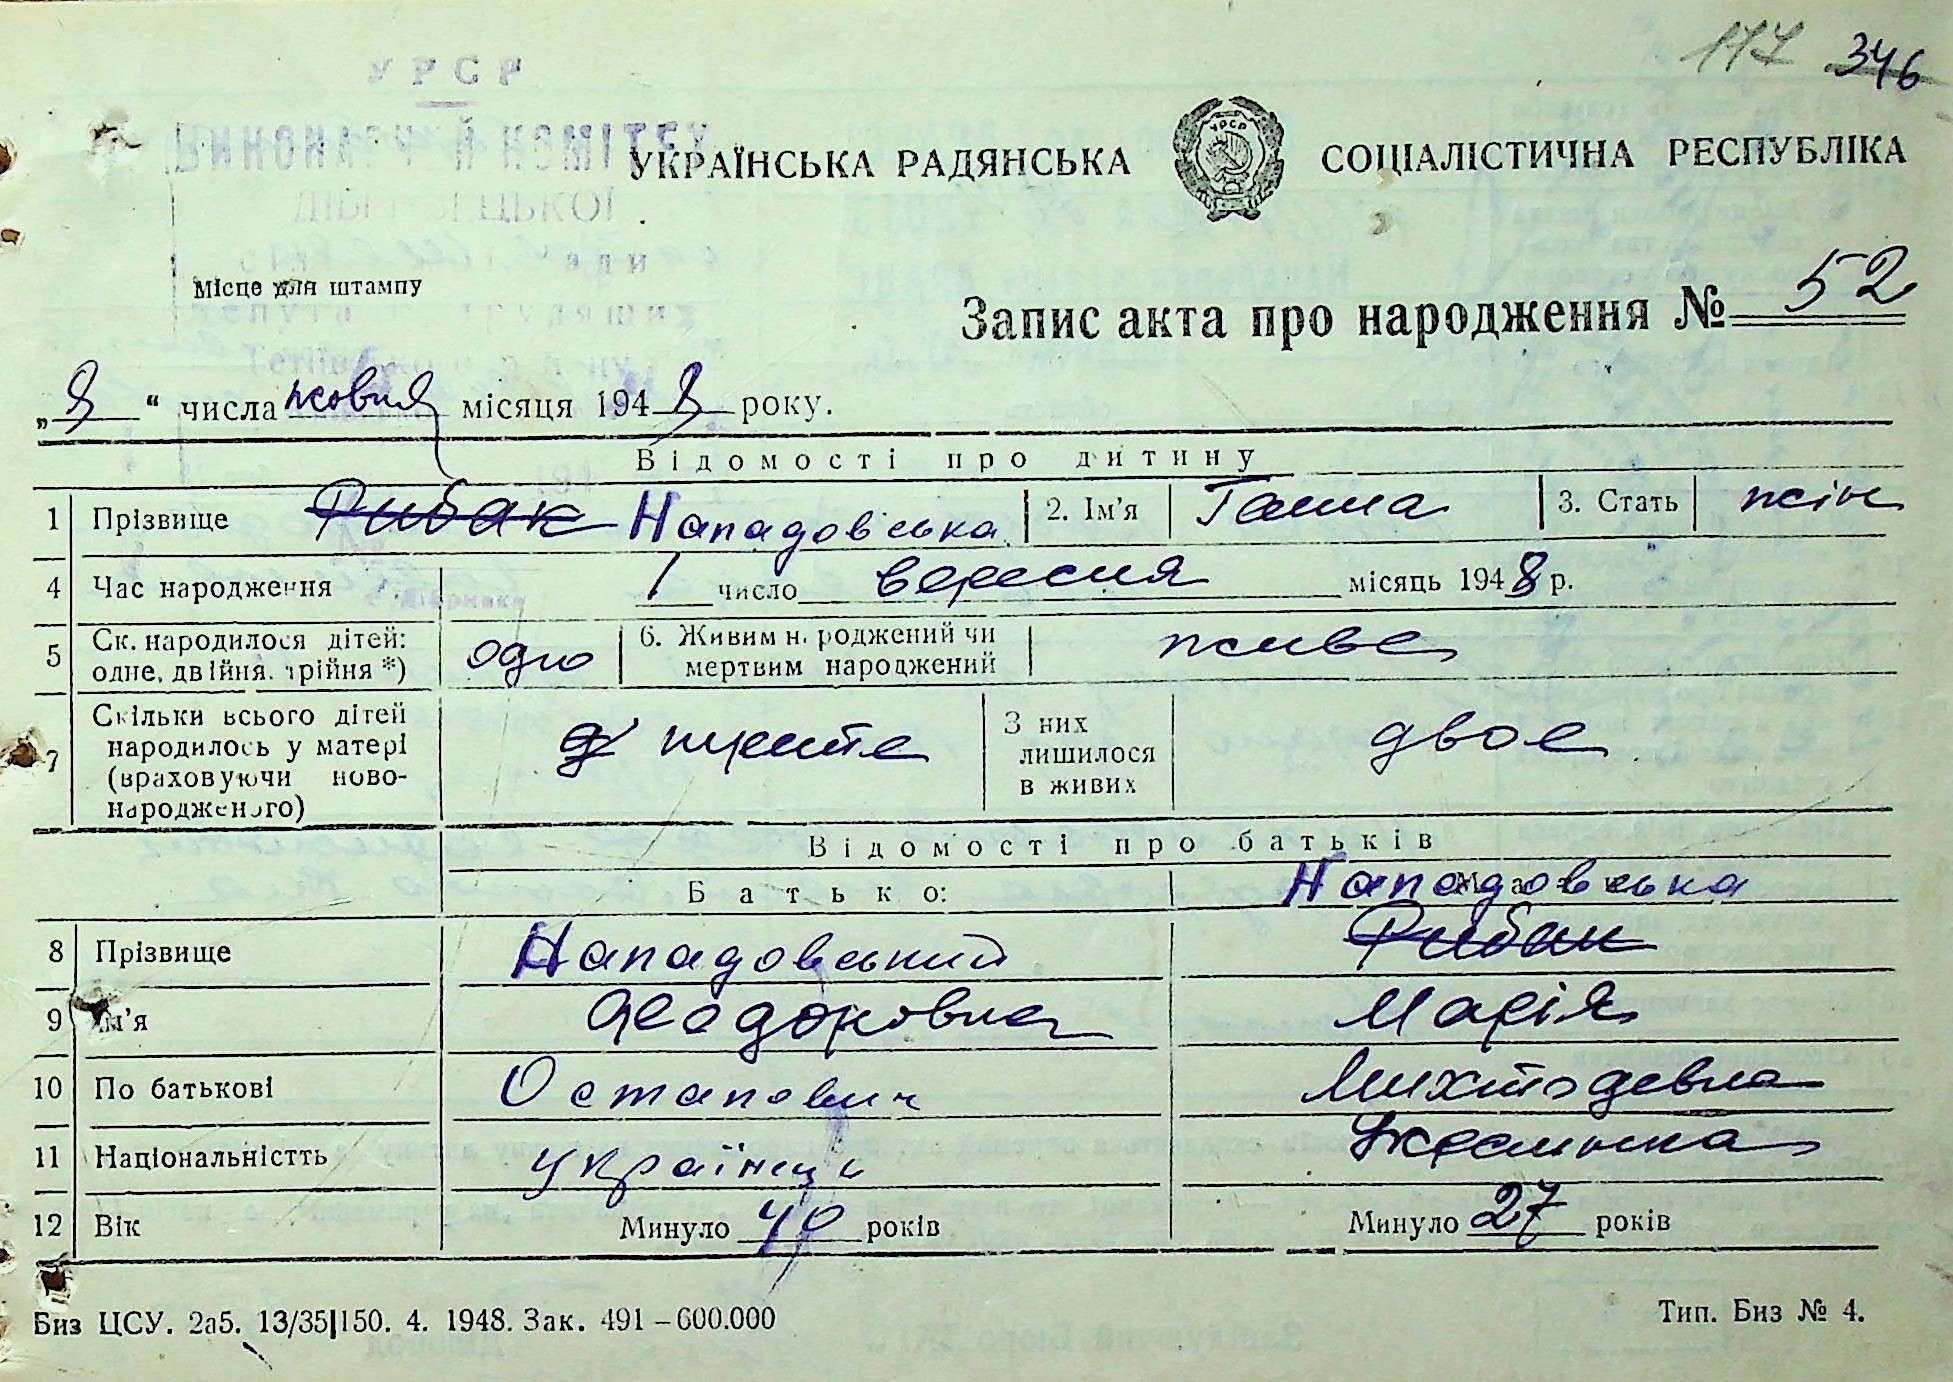 117 346
УКРАЇНСЬКА РАДЯНСЬКА СОЦІАЛІСТИЧНА РЕСПУБЛІКА
УРСР
Місце для штампу
Запис акта про народження № 52
„8“ числа жовтня місяця 1948 року.
Відомості про дитину
1 Прізвище Рибак Нападовська 2. Ім'я Ганна 3. Стать жін
4 Час народження 1 число вересня місяць 1948 р.
5 Ск. народилося дітей: одне, двійня, трійня *) одно 6. Живим народжений чи мертвим народжений живе
7 Скільки всього дітей народилось у матері (враховуючи новонародженого) третє З них лишилося в живих двоє
Відомості про батьків
Батько: Нападовська
8 Прізвище Нападовський Рибак
9 Ім'я Марія
10 По батькові Остапович
11 Національністть українець Українка
12 Вік Минуло 40 років Минуло 27 років
Биз ЦСУ. 2аб. 13/35|150. 4. 1948. Зак. 491–600.000 Тип. Биз № 4.